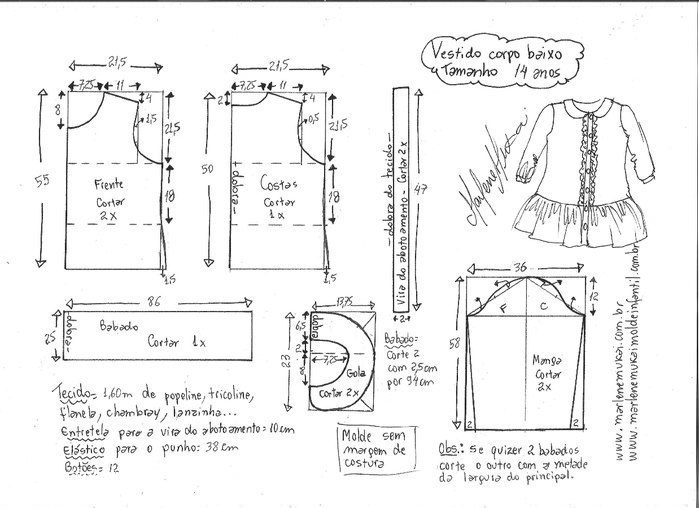 Vestido corpo baixo
Tamanho 14 anos
21,5
7,25 11
8
4
1,5
21,5
55
18
Frente
Cortar
2x
1,5
21,5
7,25 11
2
4
0,5
21,5
50
18
dobra
Costas
Cortar
1x
1,5
dobra do tecido
Vira do abotoamento - Cortar 2x
47
2
Marlene Mukai
36
12
F C
58
Manga
Cortar
2x
2 2
www.marlenemukai.com.br
www.marlenemukaimoldeinfantil.com.br
86
25
dobra
Babado
Cortar 1x
13,75
6,5
dobra
2
23
7,25
8
Gola
Cortar 2x
Babado=
Corte 2
com 2,5cm
por 94cm
Tecido= 1,60m de popeline, tricoline,
flanela, chambray, lanzinha...
Entretela para a vira do abotoamento=10cm
Elástico para o punho: 38cm
Botões= 12
Molde sem
margem de
costura
Obs.: Se quizer 2 babados
corte o outro com a metade
da largura do principal.